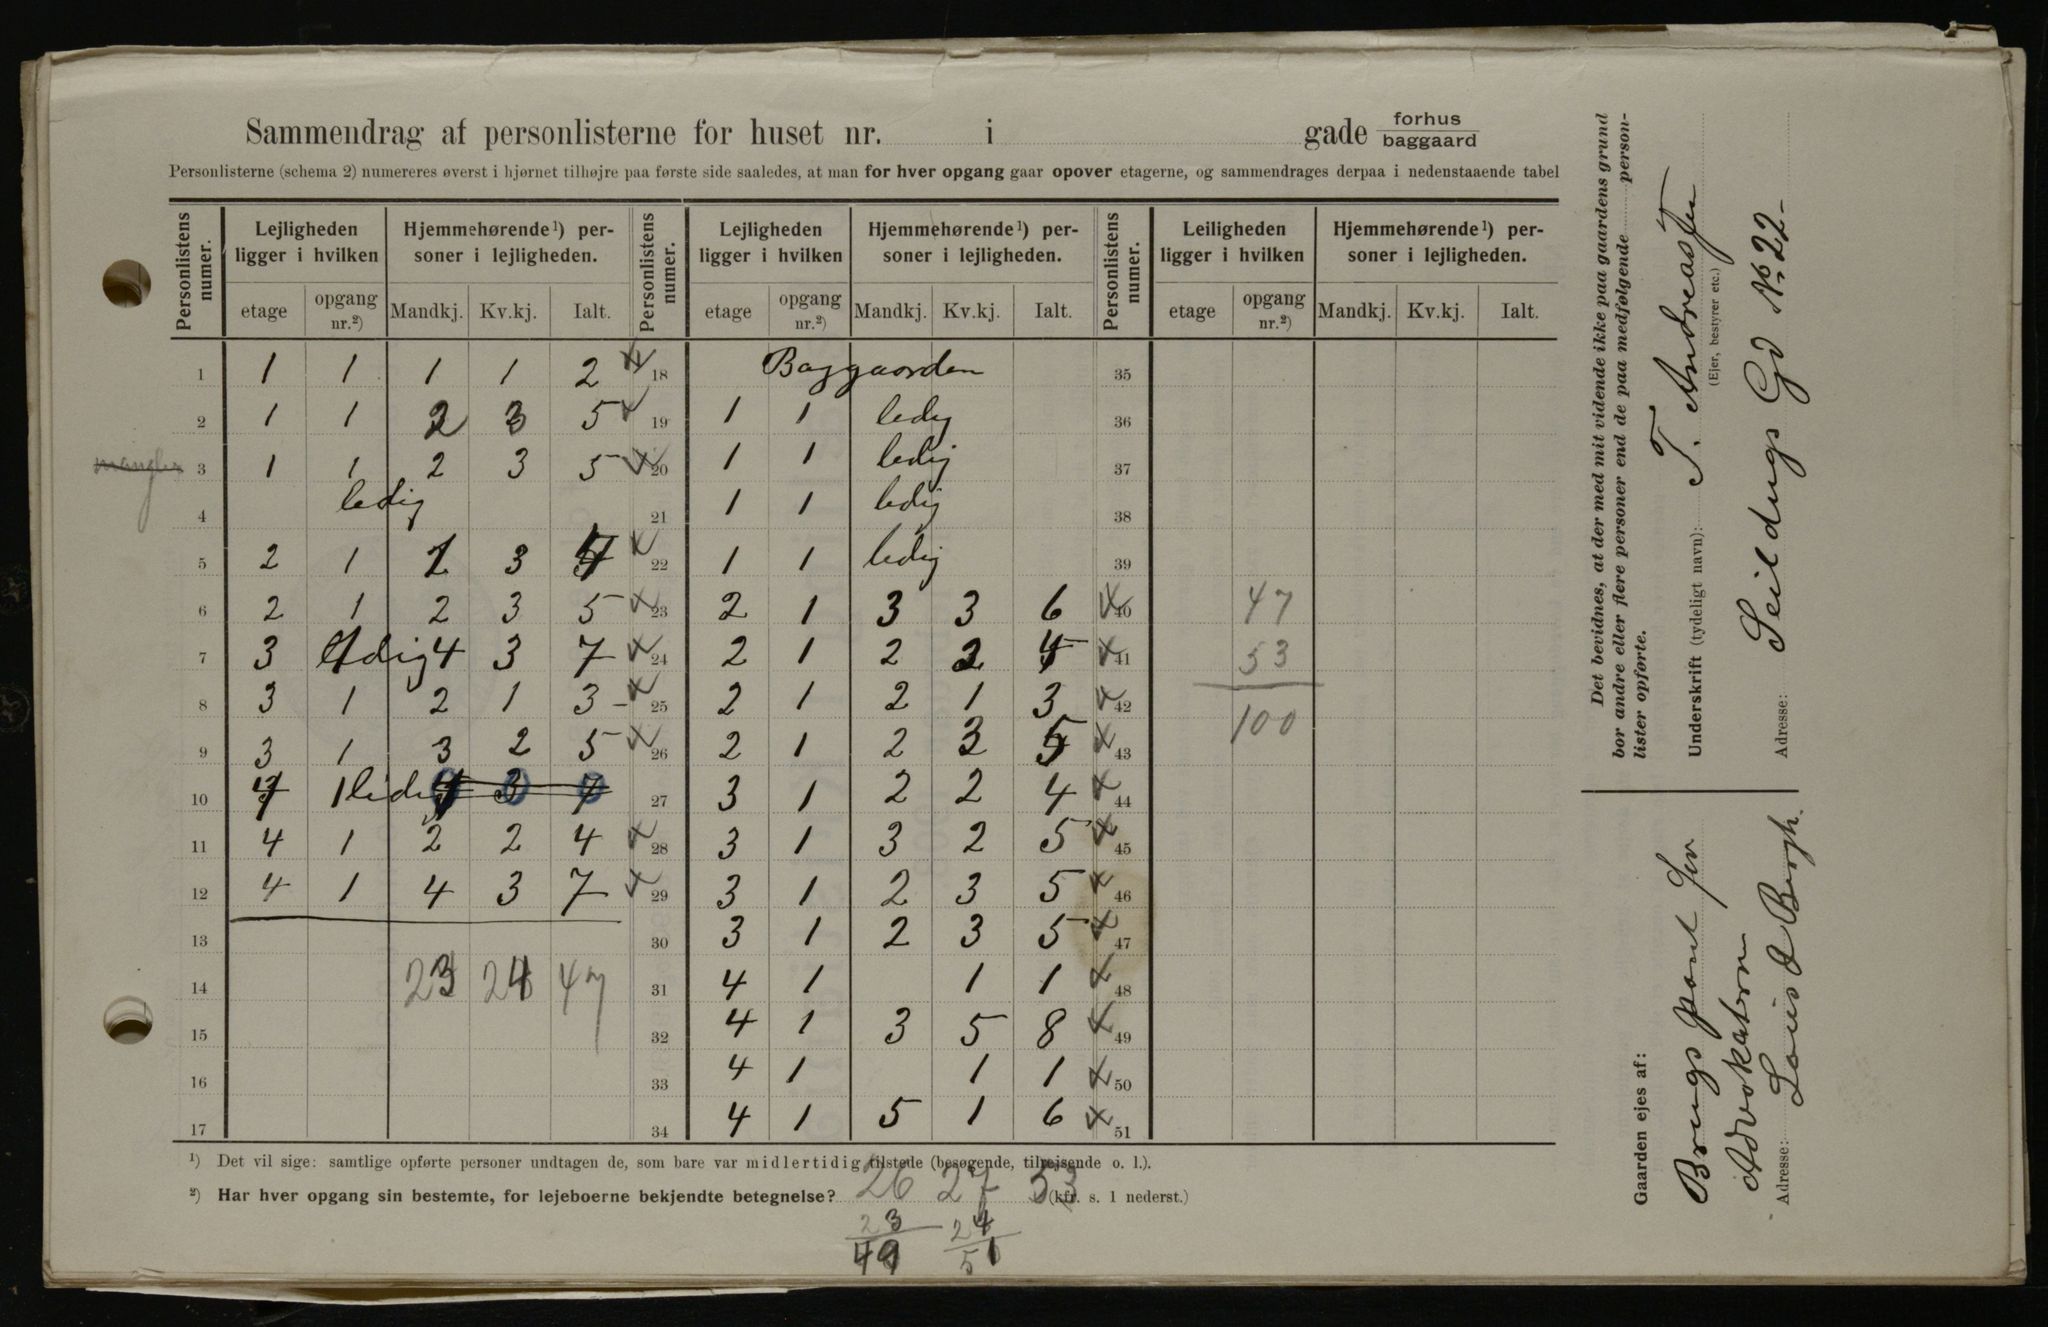 Sammendrag af personlisterne for huset nr. i gade forhus baggaard
Personlisterne (schema 2) numereres øverst i hjørnet tilhøjre paa første side saaledes, at man for hver opgang gaar opover etagerne, og sammendrages derpaa i nedenstaaende tabel
Personlistens numer. Lejligheden ligger i hvilken Hjemmehørende ¹) personer i lejligheden. Personlistens numer. Lejligheden ligger i hvilken Hjemmehørende ¹) personer i lejligheden. Personlistens numer. Leiligheden ligger i hvilken Hjemmehørende ¹) personer i lejligheden.
etage opgang nr.²) Mandkj. Kv.kj. Ialt. etage opgang nr.²) Mandkj. Kv.kj. Ialt. etage opgang nr.²) Mandkj. Kv.kj. Ialt.
1 1 1 1 1 2 x 18 Baggaarden 35
2 1 1 2 3 5 x 19 1 1 ledig 36
mangler 3 1 1 2 3 5 x 20 1 1 ledig 37
4 ledig 21 1 1 ledig 38
5 2 1 1 3 4 x 22 1 1 ledig 39
6 2 1 2 3 5 x 23 2 1 3 3 6 x 40 47
7 3 1 4 3 7 x 24 2 1 2 2 4 x 41 53
8 3 1 2 1 3 x 25 2 1 2 1 3 x 42 100
9 3 1 3 2 5 x 26 2 1 2 3 5 x 43
10 1 ledig 0 0 0 27 3 1 2 2 4 x 44
11 4 1 2 2 4 x 28 3 1 3 2 5 x 45
12 4 1 4 3 7 x 29 3 1 2 3 5 x 46
13 30 3 1 2 3 5 x 47
14 23 24 47 31 4 1 1 1 x 48
15 32 4 1 3 5 8 x 49
16 33 4 1 1 1 x 50
17 34 4 1 5 1 6 x 51
¹) Det vil sige: samtlige opførte personer undtagen de, som bare var midlertidig tilstede (besøgende, tilrejsende o. l.).
²) Har hver opgang sin bestemte, for lejeboerne bekjendte betegnelse? (kfr. s. 1 nederst.)
26 27 53
23 24
49 51
Det bevidnes, at der med mit vidende ikke paa gaardens grund
bor andre eller flere personer end de paa medfølgende person-
lister opførte.
Underskrift (tydeligt navn): T. Andreassen
(Ejer, bestyrer etc.)
Adresse: Seildugs Gd № 22
Gaarden ejes af:
Advokaterne
Adresse: Louis & Bergh.